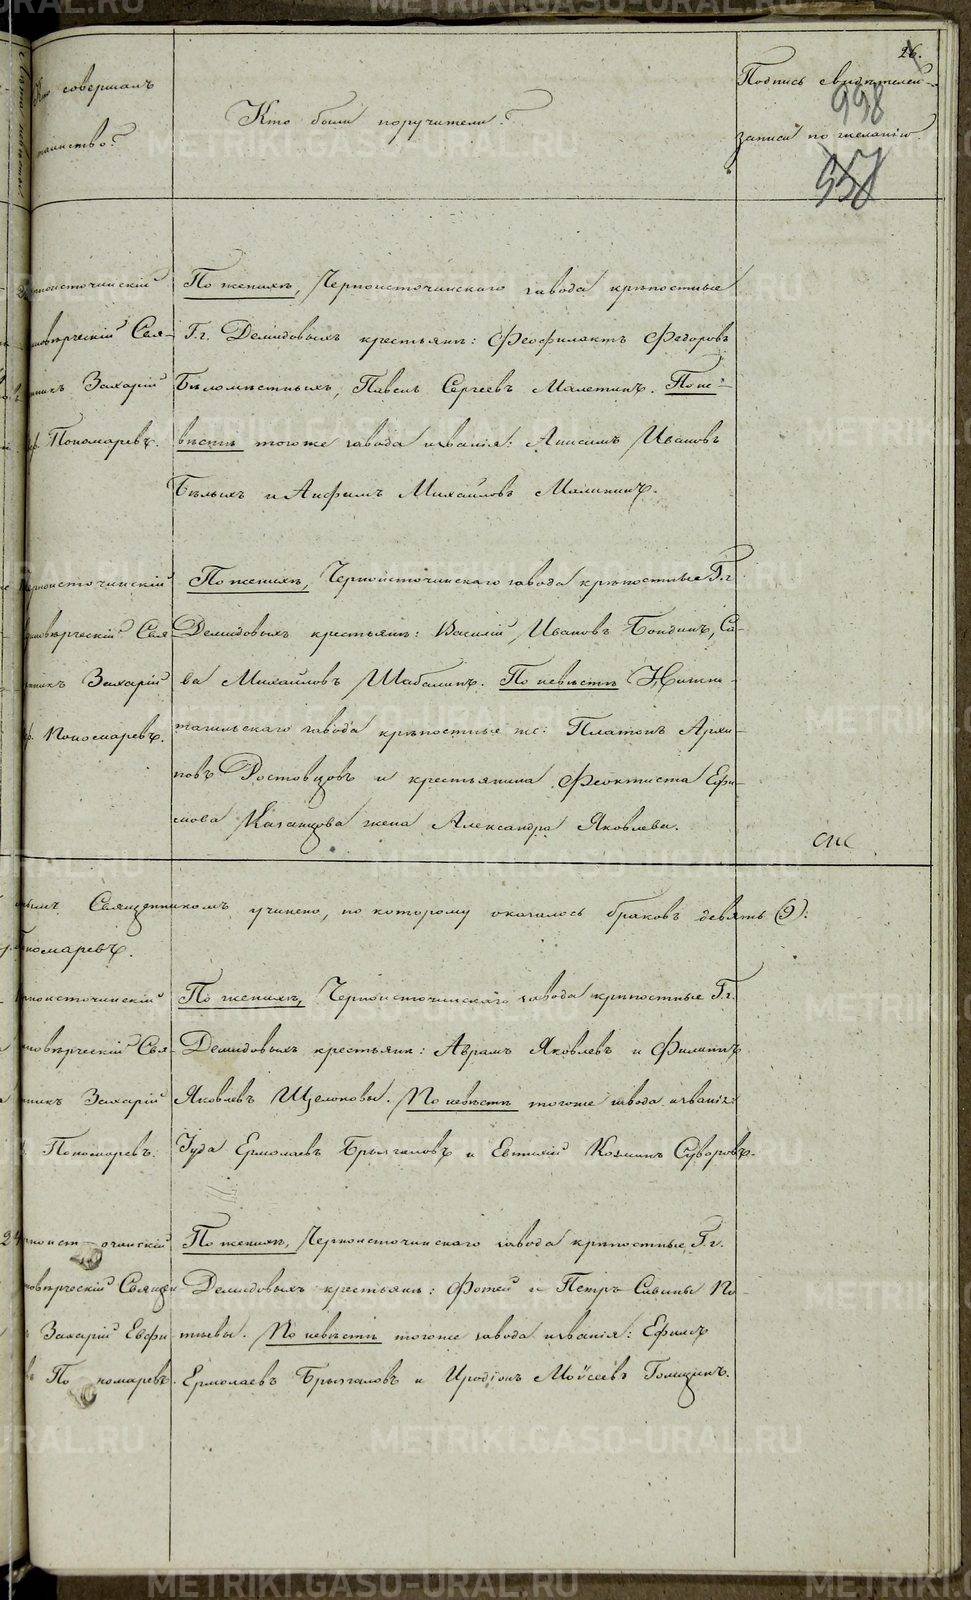 26.
Кто совершалъ
таинство?
Кто были поручители?
Подпись свидѣтелей
записи по желанію
998
957
Черноисточинскій
Единовѣрческій Свя-
щенникъ Захарій
Пономаревъ.
По женихѣ, Черноисточинскаго завода крѣпостные
Г.г. Демидовыхъ крестьяне: Феофилактъ Федоровъ
Бѣломѣстныхъ, Павелъ Сергеевъ Малетинъ. По не-
вѣстѣ тогоже завода и званія: Анисимъ Ивановъ
Бѣлыхъ и Анфимъ Михайловъ Малининъ.
Черноисточинскій
Единовѣрческій Свя
щенникъ Захарій
Пономаревъ.
По женихѣ, Черноисточинскаго завода крѣпостные Г.г.
Демидовыхъ крестьяне: Василій Ивановъ Бондинъ, Са-
ва Михайловъ Шабалинъ. По невѣстѣ Нижне-
тагильскаго завода крѣпостные же: Платонъ Архи-
повъ Ростовцовъ и крестьянина Феоктиста Ефи-
мова Казанцова жена Александра Яковлева.
нымъ Священникомъ учинено, по которому оказалось браковъ девять (9):
Пономаревъ.
Черноисточинскій
Единовѣрческій Свя-
щенникъ Захарій
Пономаревъ.
По женихѣ, Черноисточинскаго завода крѣпостные Г.г.
Демидовыхъ крестьяне: Аврамъ Яковлевъ и Филиппъ
Яковлевъ Щелоковы. По невѣстѣ тогоже завода и званія:
Іуда Ермолаевъ Брызгаловъ и Евтихій Козминъ Суворовъ.
Черноисточинскій
Единовѣрческій Священ
Захарій Евфи
Пономаревъ.
По женихѣ, Черноисточинскаго завода крѣпостные Г.г.
Демидовыхъ крестьяне: Фотей и Петръ Савины По-
тѣевы. По невѣстѣ тогоже завода и званія: Ефимъ
Ермолаевъ Брызгаловъ и Иродіонъ Мойсеевъ Голицинъ.
METRIKI.GASO-URAL.RU